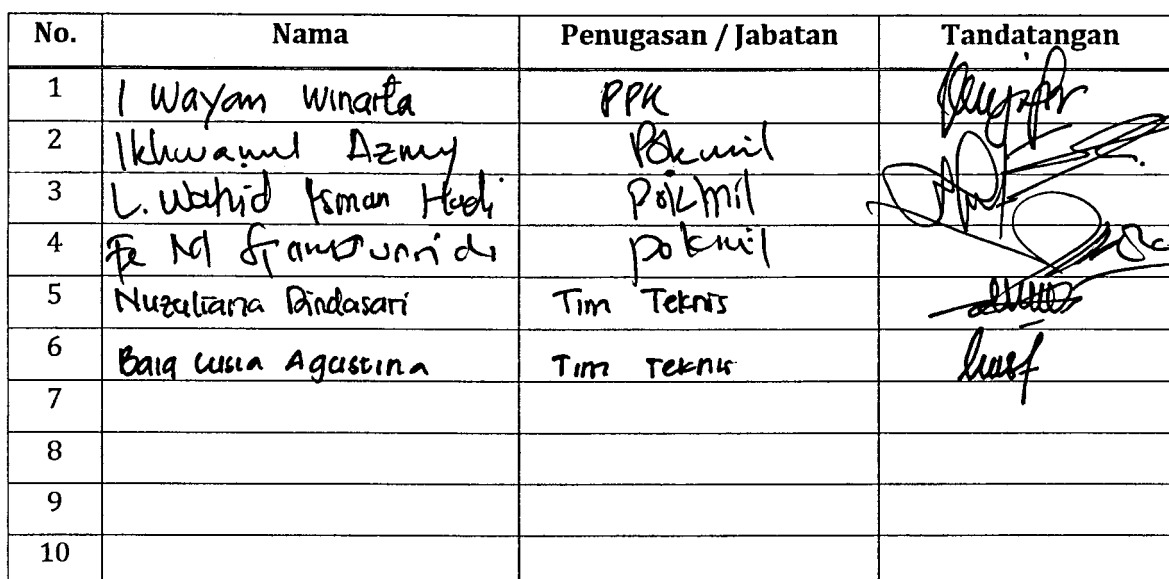 No. Nama Penugasan / Jabatan Tandatangan
1 I Wayan Winarta PPK
2 Ikhwanul Azmy Pokmil
3 L. Wahid Isman Hadi Pokmil
4 pokmil
5 Nuzuliana Dindasari Tim Teknis
6 Baiq Lusia Agustina Tim Teknis
7
8
9
10